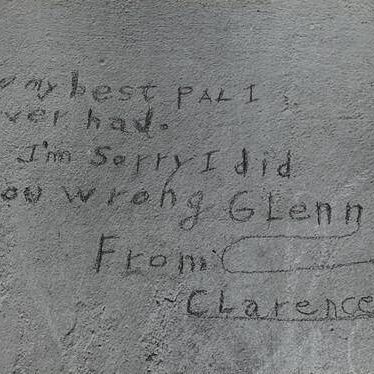 my best PAL I
ver had.
I'm Sorry I did
ou wrong GLenn
From
CLarence